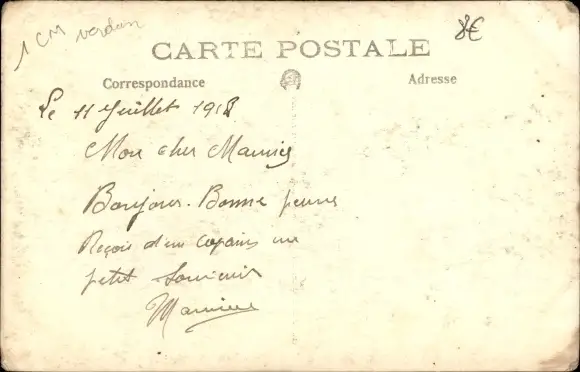 1 CM verdun
8€
CARTE POSTALE
Correspondance
Adresse
Le 11 Juillet 1918
Mon cher Maurice
Bonjour. Bonne
Reçois d'un Copain un
petit Souvenir
Maurice